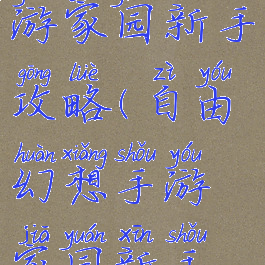 游家园新手
gōng lüè zì yóu
攻略(自由
huàn xiǎng shǒu yóu
幻想手游
jiā yuán xīn shǒu
家园新手